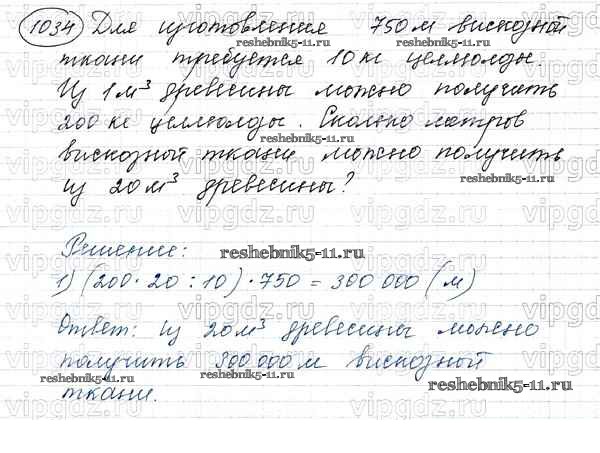 1034 Для изготовления 750 м вискозной
ткани требуется 10 кг целлюлозы.
Из 1 м³ древесины можно получить
200 кг целлюлозы. Сколько метров
вискозной ткани можно получить
из 20 м³ древесины?
Решение:
1) (200 · 20 : 10) · 750 = 300 000 (м)
Ответ: из 20 м³ древесины можно
получить 300 000 м вискозной
ткани.
reshebnik5-11.ru
reshebnik5-11.ru
reshebnik5-11.ru
reshebnik5-11.ru
reshebnik5-11.ru
reshebnik5-11.ru
reshebnik5-11.ru
reshebnik5-11.ru
vipgdz.ru